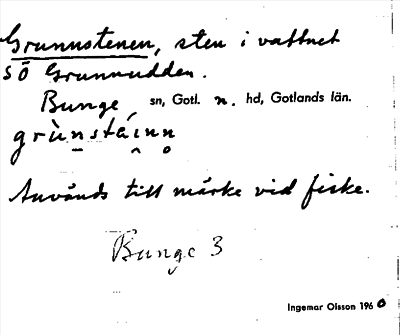 Grunnstenen, sten i vattnet
SÖ Grunnudden.
Bunge, sn, Gotl. n. hd, Gotlands län.
grùnstáinn
Används till märke vid fiske.
Bunge 3
Ingemar Olsson 1960